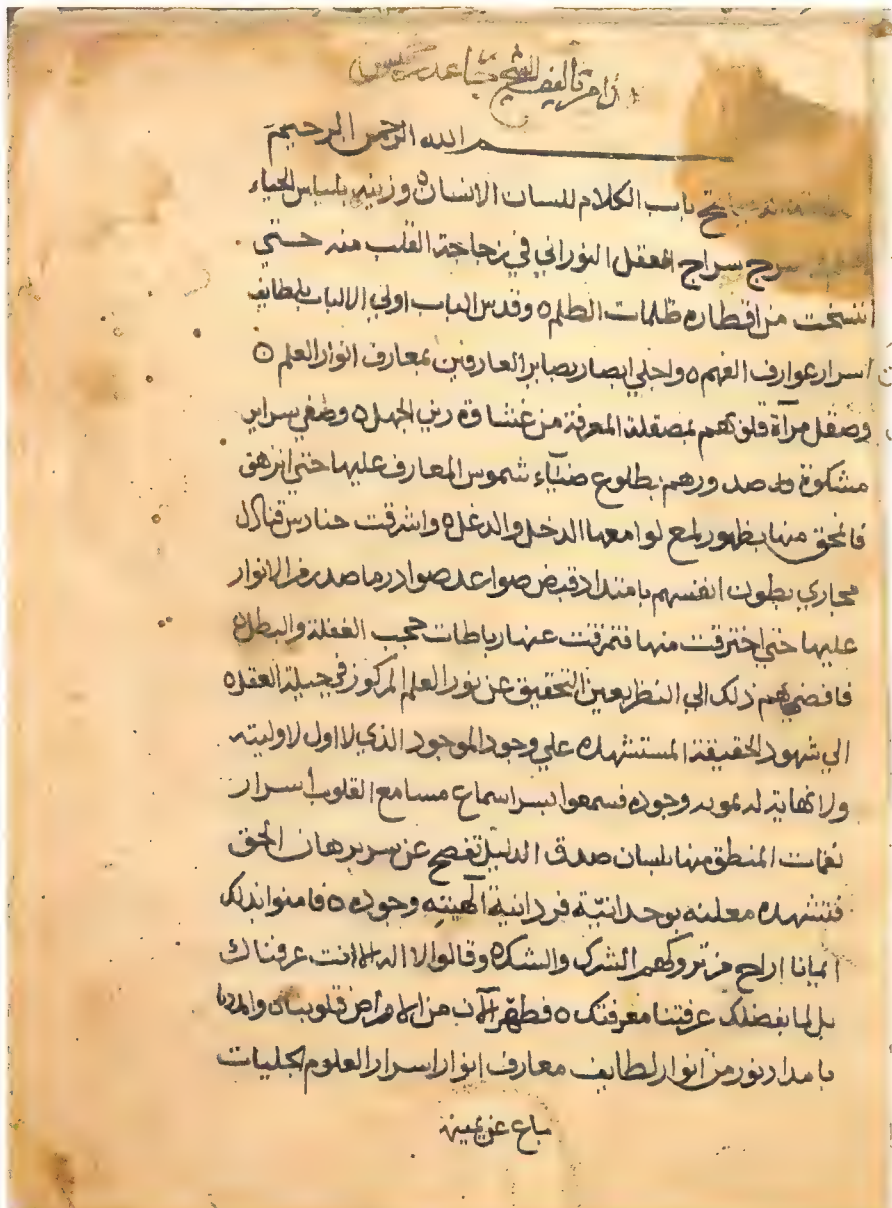 بسم الله الرحمن الرحيم
باب الكلام للسان الانسان ٥ وزينه بلباس الحياء
سرج سراج العقل النوراني في زجاجة القلب منه حتي
انتسخت من اقطاره ظلمات الظلم ٥ وقدس الباب اولي الالباب بلطايف
اسرار عوارف الفهم ٥ واجلي ابصار بصاير العارفين بمعارف انوار العلم ٥
وصقل مرآة قلوبهم بمصقلة المعرفة من غشاوة رين الجهل ٥ وصفي سراير
مشكوة صدورهم بطلوع ضيآء شموس المعارف عليها حتي انزهق
فانمحق منها بظهور لمع لوامعها الدخل والدغل ٥ واشرقت حنادس
مجاري بطون انفسهم بامتداد صوادر ما صدر من الانوار
عليها حتي اخترقت منها فتمزقت عنها رباطات حجب الغفلة والبطل
فافضي بهم ذلك الي النظر بعين التحقيق عن نور العلم المركوز في جبلة العقل ٥
الي شهود الحقيقة المستشهده علي وجود الموجود الذي لا اول لاوليته
ولا نهاية له وجوده فسمعوا بسر اسماع مسامع القلوب اسرار
نغمات المنطق منها بلسان صدق الدليل تفصح عن سر برهان الحق
فتشهده معلنه بوحدانيّة فردانية الهيته وجوده ٥ فامنوا بذلك
ايمانا الشرك والشك ٥ وقالوا لا اله الا انت عرفناك
بل لما بفضلك عرفتنا معرفتك ٥ فطهر الآن من الامراض قلوبنا ٥
بامداد نور من انوار لطايف معارف انوار اسرار العلوم الجليات
باع عن يمينه